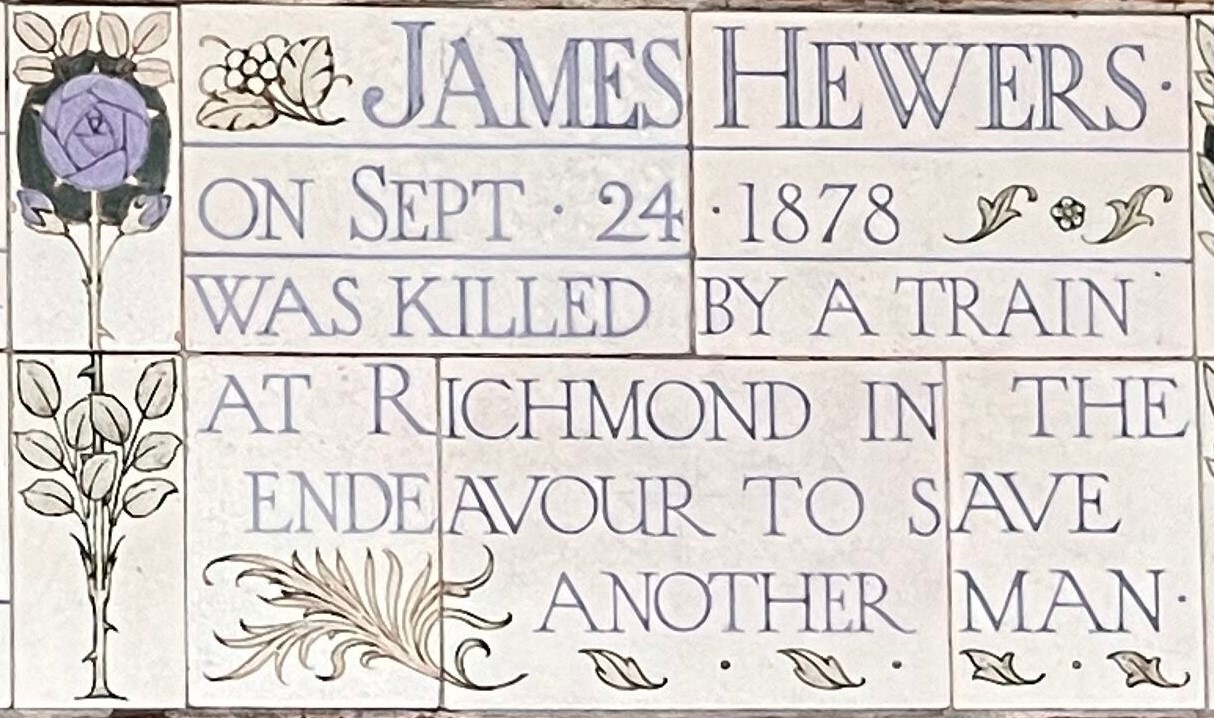 JAMES HEWERS·
ON SEPT · 24 · 1878
WAS KILLED BY A TRAIN
AT RICHMOND IN THE
ENDEAVOUR TO SAVE
ANOTHER MAN·